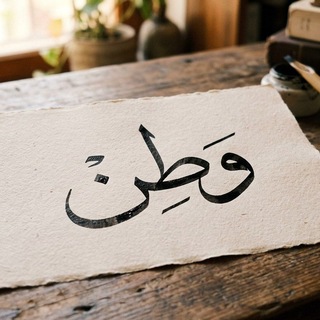 وَطِنْ